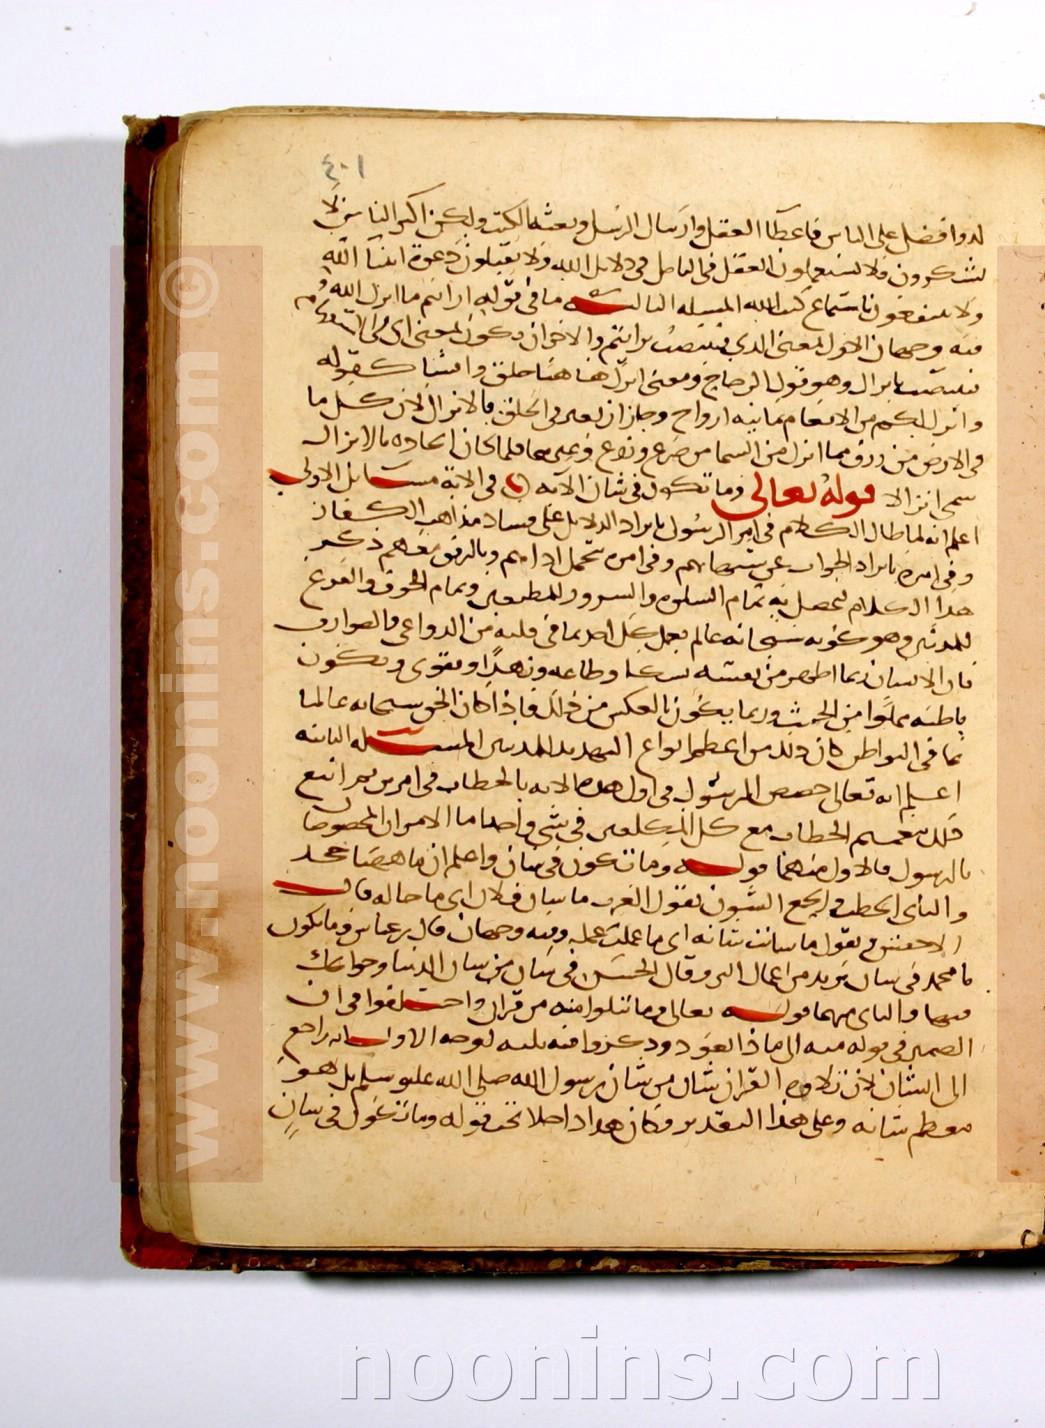 ٤٠١
لذو افضل على الناس باعطا العقل وارسال الرسل وبعثه الكتب ولكن اكثر الناس لا
يشكرون فلا يستعملون العقل في التامل في دلايل الله ولا يقبلون دعوة انبيا الله
ولا ينتفعون باستماع كتب الله المسئلة الثالثة ما في قوله ارايتم ما انزل الله
فيه وجهان الاول بمعنى الذي فينتصب برايتم والاخر ان يكون بمعنى اي في الاستفهام
فينتصب بانزل وهو قول الزجاج ومعنى انزل هنا هنا خلق وانشا كقوله
وانزل لكم من الانعام ثمانيه ازواج وجاز ان يعبر عن الخلق بالانزال لان كل ما
في الارض من رزق مما انزل من السما من ضرع وزرع وغيرهما فلما كان ايجاده بالانزال
سمي انزالا قوله تعالى وما تكون في شان الآيه في الاية مسايل الاولى
اعلم انه لما طال الكلام في امر الرسول بايراد الدلايل على فساد مذاهب الكفار
وفي امره بايراد الجواب عن شبهاتهم وفي امره بتحمل اذاهم وبالرفق معهم ذكر
هذا الكلام ليحصل به تمام السلوه والسرور للمطيعين وتمام الخوف والفزع
للمذنبين وهو كونه سبحانه عالم بعمل كل احد بما في قلبه من الدواعي والصوارف
فان الانسان ربما اظهر من نفسه نسكا وطاعه وزهدا وتقوى ويكون
باطنه مملوا من الخبث وربما يكون بالعكس من ذلك فاذا كان الحق سبحانه عالما
بما في البواطن كان ذلك من اعظم انواع التهديد للمذنبين المسئله الثانيه
اعلم انه تعالى خصص الرسول في اول هذه الايه بالخطاب في امرين ثم اتبع
ذلك بتعميم الخطاب مع كل المكلفين في شي واحد اما الامران المخصوصان
بالرسول فالاول منهما قوله وما تكون في شان واعلم ان ما هاهنا جحد
والشان الخطب والجمع الشيون تقول العرب ما شان فلان اي ما حاله قال
الاخفش وتقول ما شانت شانه اي ما عملت عمله وفيه وجهان قال بن عباس وما تكون
يا محمد في شان يريد من اعمال البر وقال الحسن في شان من شان الدنيا وحوايجك
فيها والثاني منهما قوله تعالى وما تتلوا منه من قران واختلفوا في ان
الضمير في قوله منه الى ماذا يعود وذكروا فيه ثلثه اوجه الاول انه راجع
الى الشان لان تلاوه القران شان من شان رسول الله صلى الله عليه وسلم بل هو
معظم شانه وعلى هذا التقدير فكان هذا داخلا تحت قوله وما تكون في شان
www.noonins.com ©
noonins.com